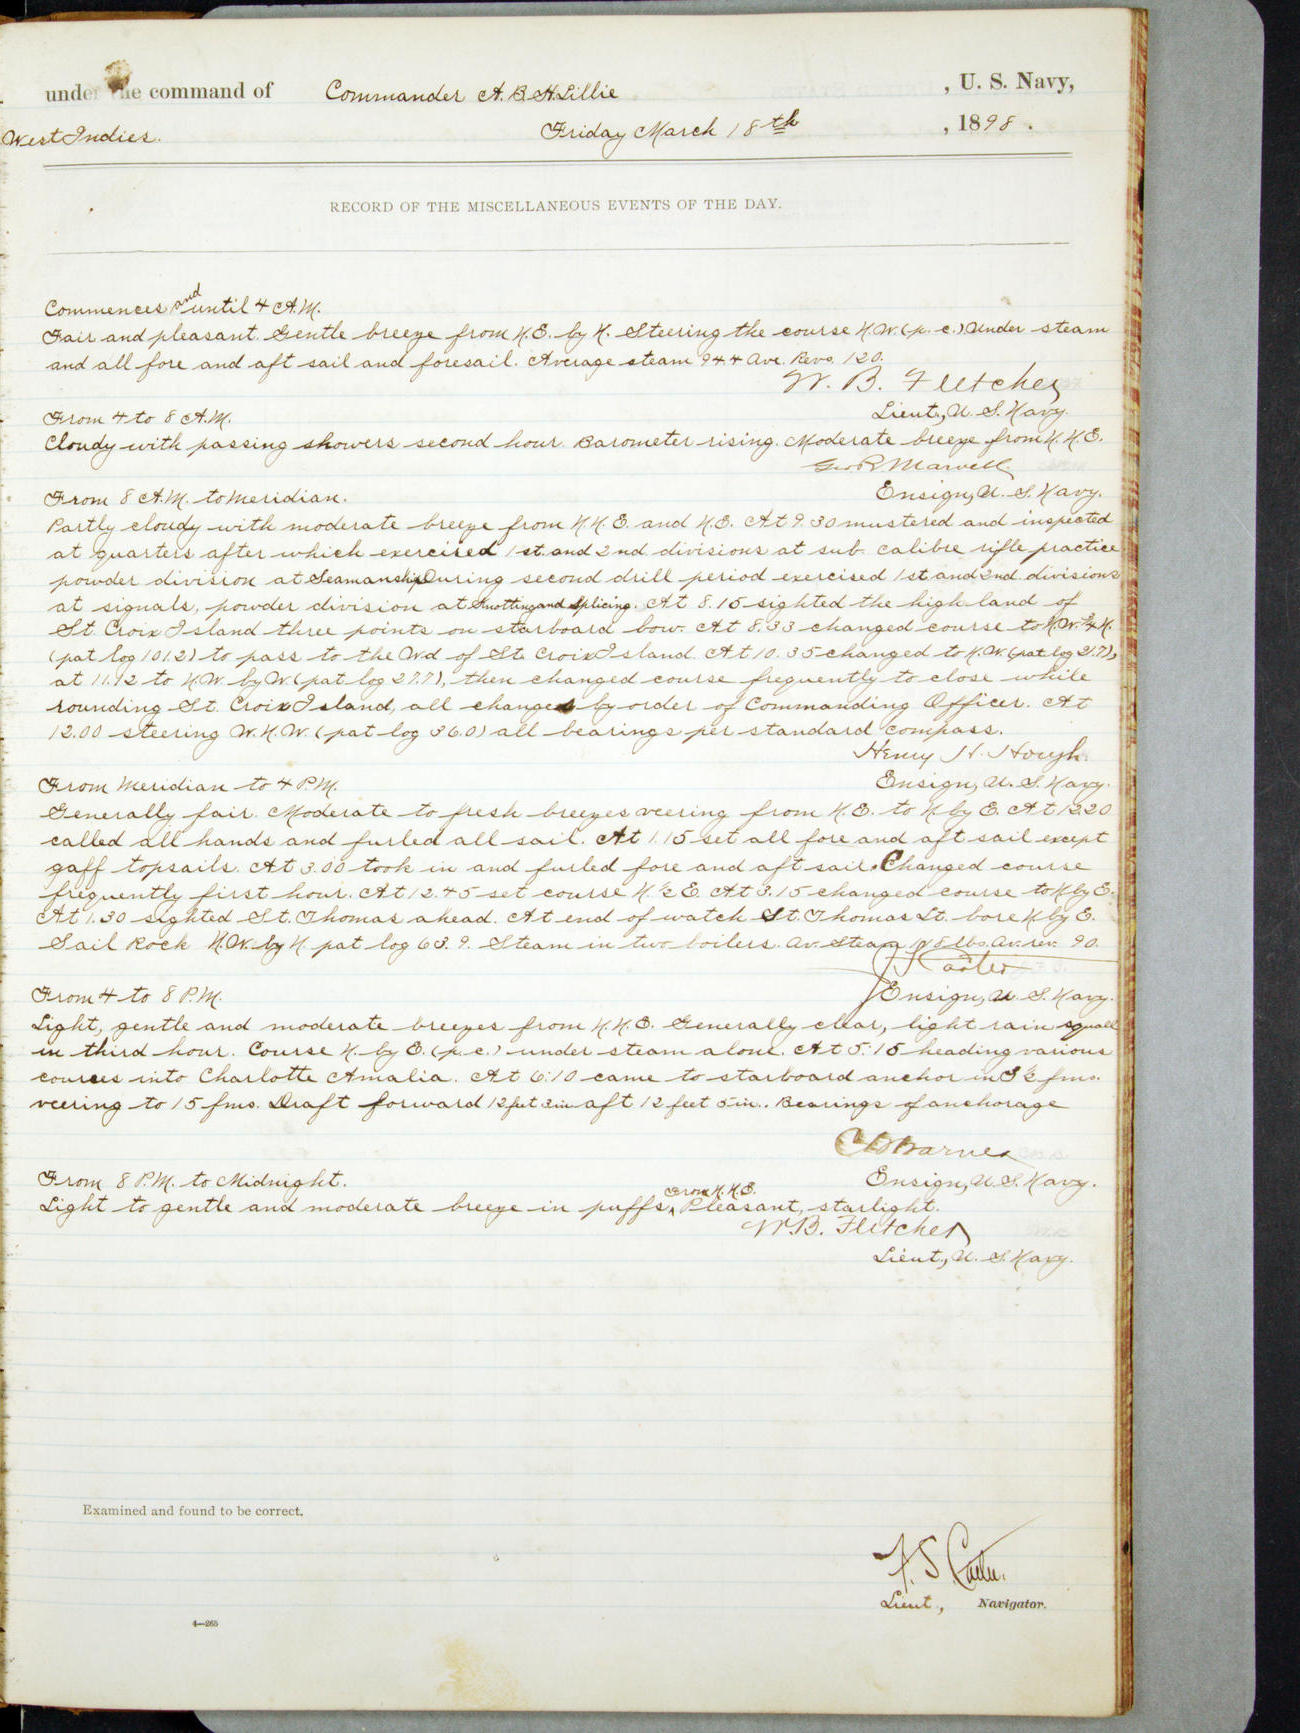 under the command of Commander A. B. H. Lillie, U. S. Navy,
West Indies. Friday March 18th, 1898.
RECORD OF THE MISCELLANEOUS EVENTS OF THE DAY.
Commences and until 4 A.M.
Fair and pleasant. Gentle breeze from N.E. by N. Steering the course N.W. (p. c.) Under steam
and all fore and aft sail and foresail. Average steam 94.4 Ave. Revs. 120.
W. B. Fletcher
Lieut., U. S. Navy.
From 4 to 8 A.M.
Cloudy with passing showers second hour. Barometer rising. Moderate breeze from N.N.E.
Geo R. Marvell
Ensign, U. S. Navy.
From 8 A.M. to Meridian.
Partly cloudy with moderate breeze from N.N.E. and N.E. At 9.30 mustered and inspected
at quarters after which exercised 1st. and 2nd divisions at sub. calibre rifle practice
powder division at Seamanship During second drill period exercised 1st and 2nd divisions
at signals, powder division at Knotting and Splicing. At 8.15 sighted the high land of
St. Croix Island three points on starboard bow. At 8.33 changed course to N.W. ¾ N.
(pat log 101.2) to pass to the Wd of St. Croix Island. At 10.35 changed to N.W. (pat log 21.7),
at 11.12 to N.W. by W. (pat log 27.7), then changed course frequently to close while
rounding St. Croix Island, all changes by order of Commanding Officer. At
12.00 steering W.N.W. (pat log 36.0) all bearings per standard compass.
Henry H. Hough.
Ensign, U. S. Navy.
From Meridian to 4 P.M.
Generally fair. Moderate to fresh breezes veering from N.E. to N. by E. At 12.20
called all hands and furled all sail. At 1.15 set all fore and aft sail except
gaff topsails. At 3.00 took in and furled fore and aft sail. Changed course
frequently first hour. At 12.45 set course N. ½ E. At 3.15 changed course to N by E.
At 1.30 sighted St. Thomas ahead. At end of watch St. Thomas Lt. bore N by E.
Sail Rock N.W. by N. pat log 63.9. Steam in two boilers. Av. Steam lbs. Av. rev. 90.
Ensign, U. S. Navy.
From 4 to 8 P.M.
Light, gentle and moderate breezes from N.N.E. Generally clear, light rain squall
in third hour. Course N. by E. (p. c.) under steam alone. At 5:15 heading various
courses into Charlotte Amalia. At 6:10 came to starboard anchor in fms.
veering to 15 fms. Draft forward 12 feet 2 in aft 12 feet 5 in. Bearings of anchorage
C D Barnes
Ensign, U. S. Navy.
From 8 P.M. to Midnight.
Light to gentle and moderate breeze in puffs, from N.N.E. Pleasant, starlight.
W. B. Fletcher
Lieut., U. S. Navy.
Examined and found to be correct.
F. S. Carter.
Lieut., Navigator.
4—265